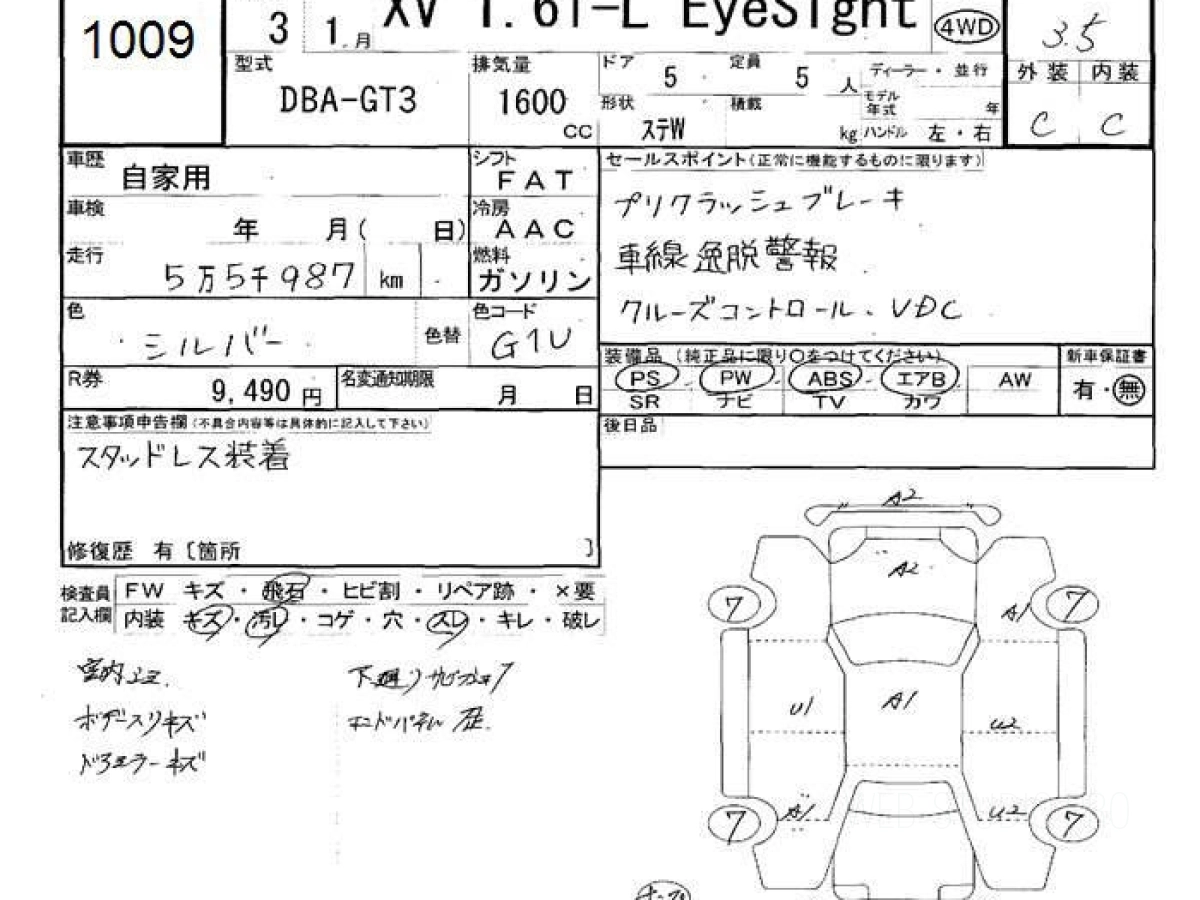 1009
3 1.月 XV 1.6i-L EyeSight 4WD 3.5
型式 DBA-GT3
排気量 1600 CC
ドア 5 定員 5 人
形状 ステW 積載 kg
ディーラー・並行
モデル年式 年
ハンドル 左・右
外装 内装
C C
車歴 自家用
シフト FAT
車検 年 月( 日)
冷房 AAC
走行 5万5千987 km
燃料 ガソリン
色 シルバー 色替
色コード G1U
R券 9,490円
名変通知期限 月 日
セールスポイント(正常に機能するものに限ります)
プリクラッシュブレーキ
車線逸脱警報
クルーズコントロール.VDC
装備品(純正品に限り○をつけてください)
PS PW ABS エアB AW
SR ナビ TV カワ
新車保証書
有・無
後日品
注意事項申告欄(不具合内容等は具体的に記入して下さい)
スタッドレス装着
修復歴 有〔箇所 〕
検査員記入欄
FW キズ・飛石・ヒビ割・リペア跡・×要
内装 キズ・汚レ・コゲ・穴・スレ・キレ・破レ
ボデースリキズ
ドアミラーキズ
下廻りサビ
エンドパネル
A2
A2
7 A1 7
U1 A1 U2
A1 U2
7 7